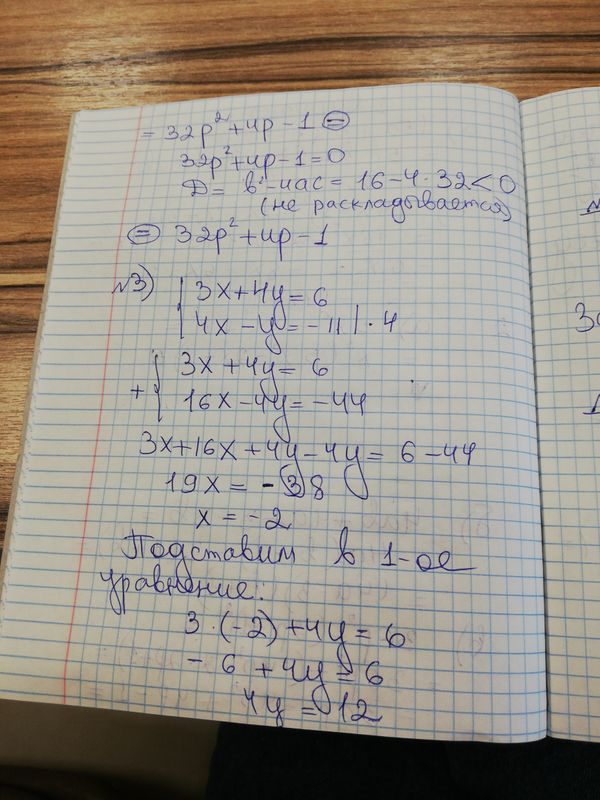 = 32p² + 4p - 1 ⊜
32p² + 4p - 1 = 0
D = b² - 4ac = 16 - 4 · 32 < 0
(не раскладывается)
⊜ 32p² + 4p - 1
№3) { 3x + 4y = 6
4x - y = -11 | · 4
+ { 3x + 4y = 6
16x - 4y = -44
3x + 16x + 4y - 4y = 6 - 44
19x = -38
x = -2
Подставим в 1-ое
уравнение:
3 · (-2) + 4y = 6
- 6 + 4y = 6
4y = 12